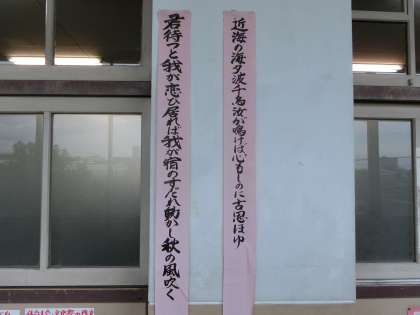 近海の海夕波千鳥汝が鳴けば心もしのに古思ほゆ
君待つと我が恋ひ居れば我が宿のすだれ動かし秋の風吹く